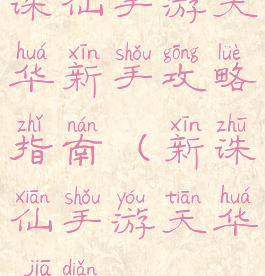 诛仙手游天
huá xīn shǒu gōng lüè
华新手攻略
zhǐ nán xīn zhū
指南（新诛
xiān shǒu yóu tiān huá
仙手游天华
jiā diǎn